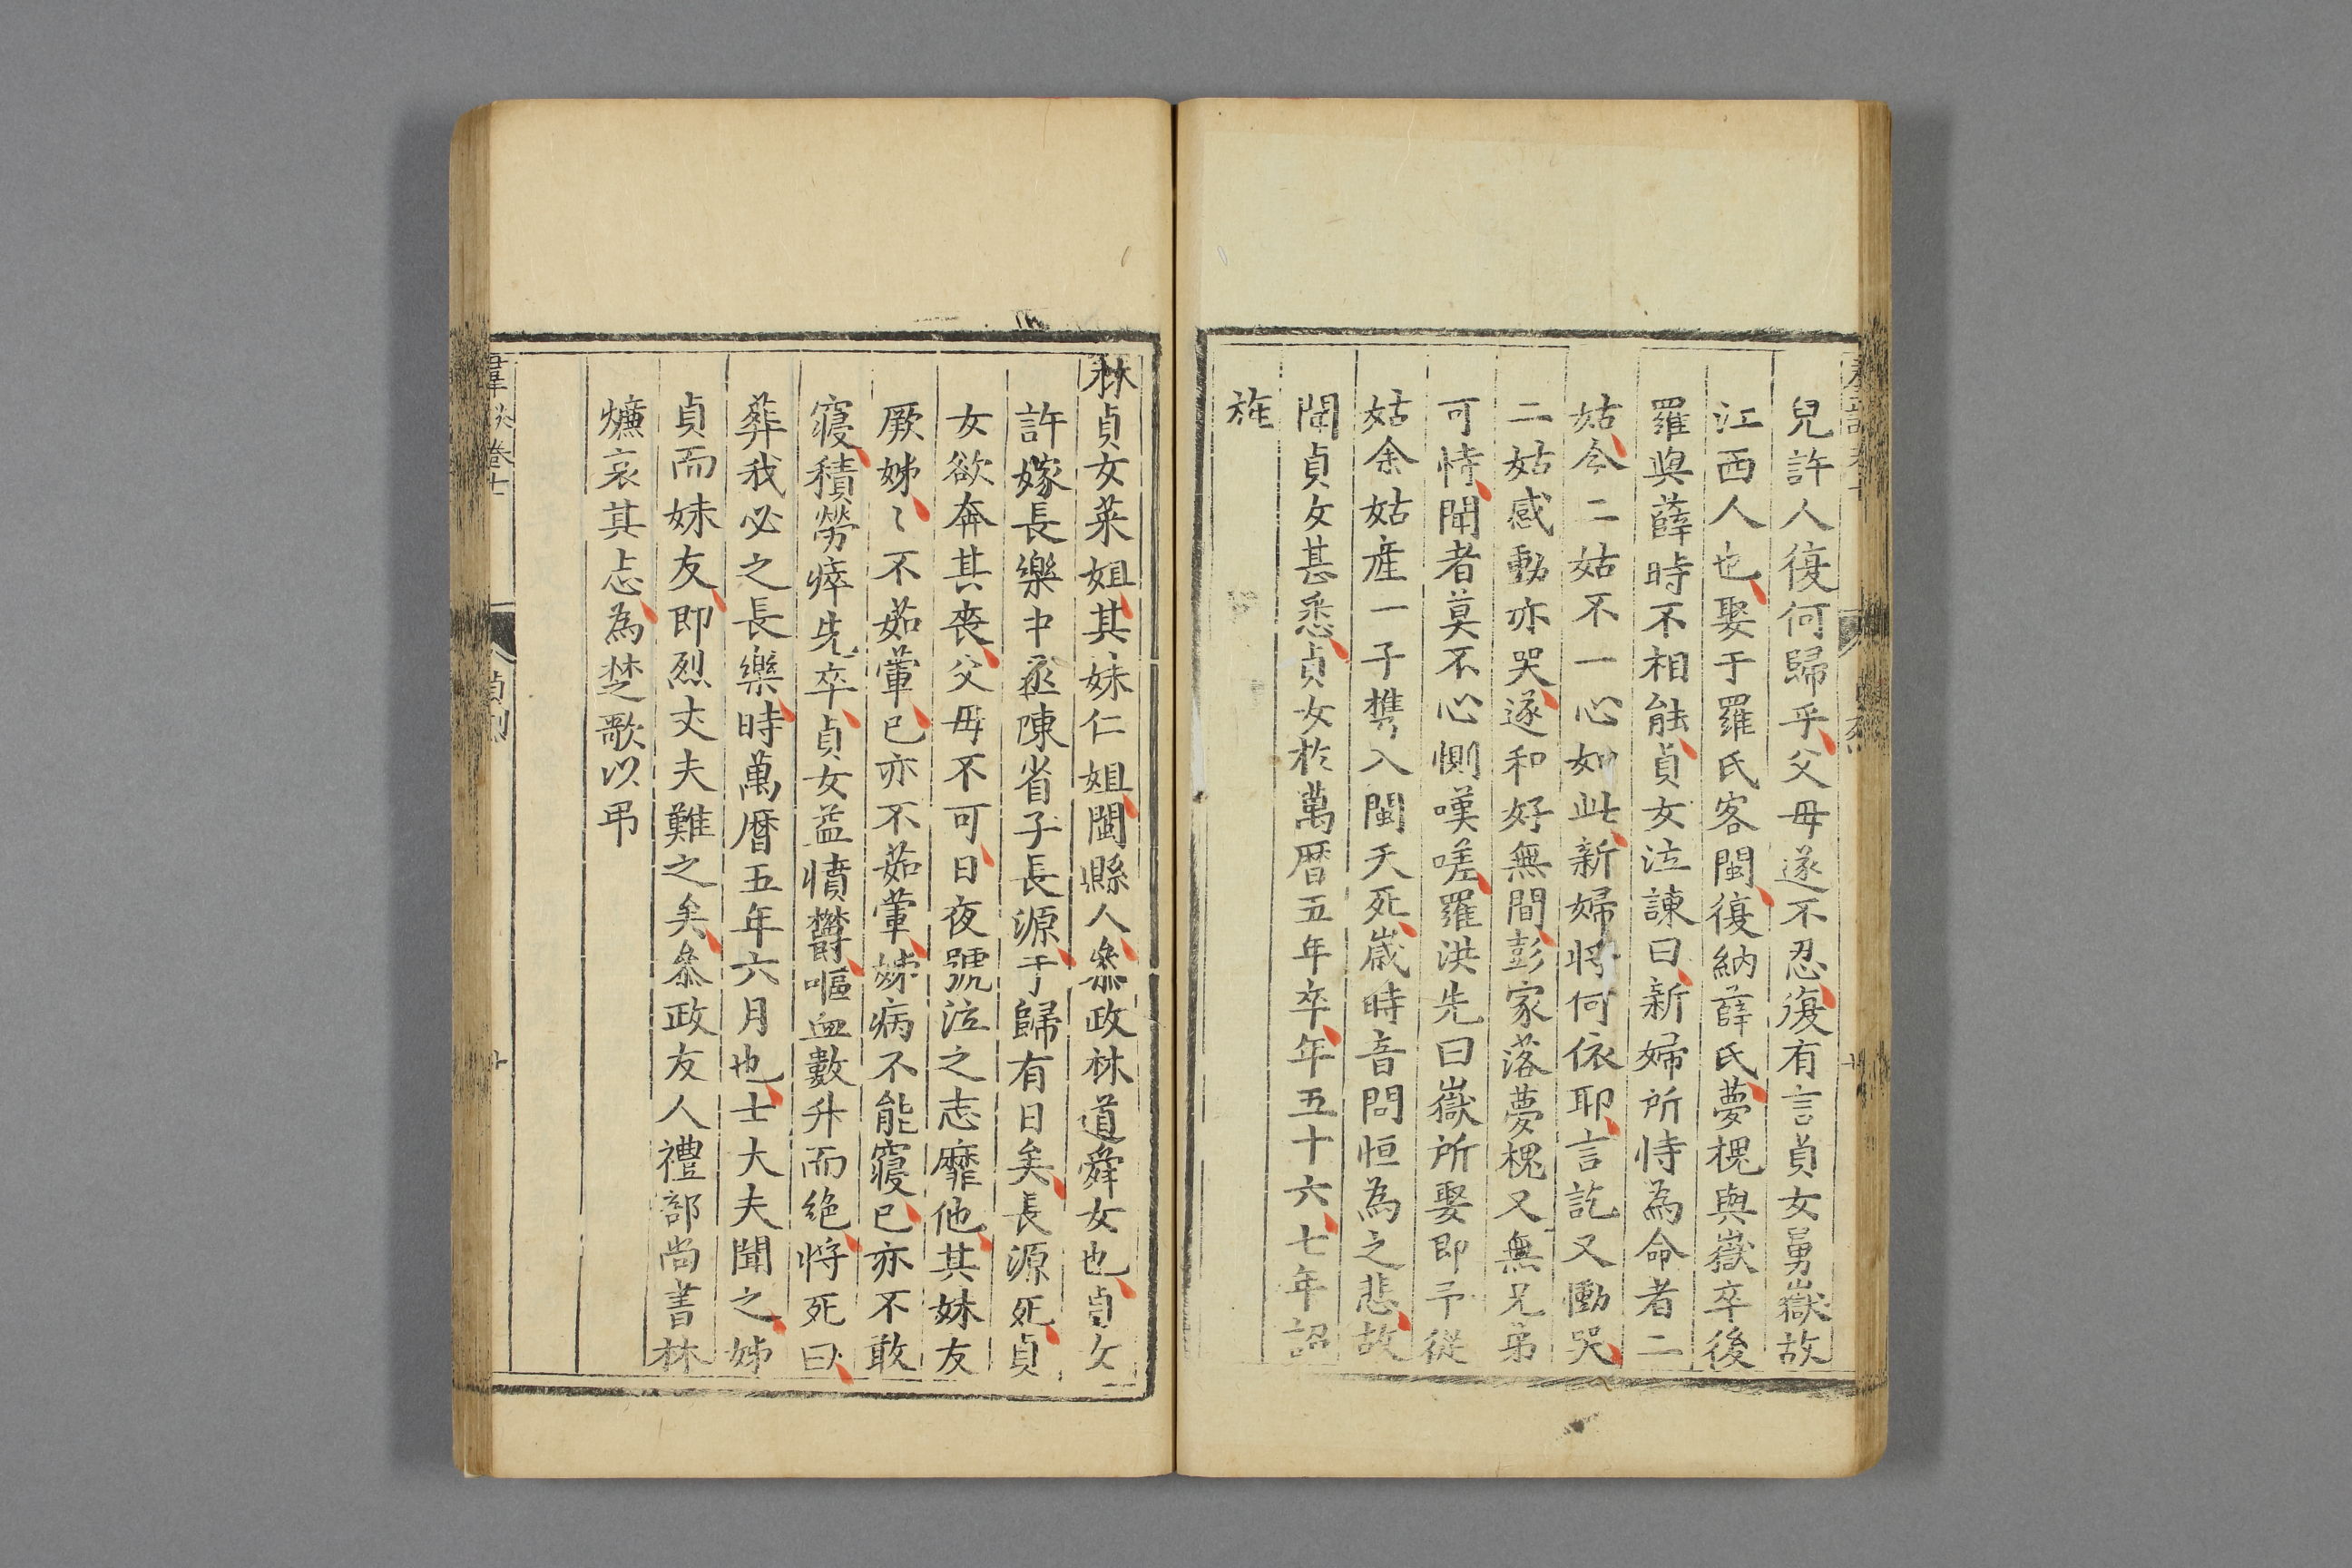 兒許人復何歸乎父母遂不忍復有言貞女舅嶽故
江西人也娶于羅氏客閩復納薛氏夢槐與嶽卒後
羅與薛時不相能貞女泣諫曰新婦所恃為命者二
姑今二姑不一心如此新婦將何依耶言訖又慟哭
二姑感動亦哭遂和好無間彭家落夢槐又無兄弟
可恃聞者莫不心惻嘆嗟羅洪先曰嶽所娶即予從
姑余姑産一子携入閩夭死嵗時音問恒為之悲故
聞貞女甚悉貞女於萬曆五年卒年五十六七年詔
旌
林貞女菜姐其妹仁姐閩縣人叅政林道舜女也貞女
許嫁長樂中丞陳省子長源于歸有日矣長源死貞
女欲奔其喪父毋不可日夜號泣之志靡他其妹友
厥姊〻不茹葷已亦不茹葷姊病不能寢已亦不敢
寢積勞瘁先卒貞女益憤欝嘔血數升而絶將死曰
葬我必之長樂時萬曆五年六月也士大夫聞之姊
貞而妹友即烈丈夫難之矣叅政友人禮部尚書林
爌哀其志為楚歌以弔
卷十
貞烈